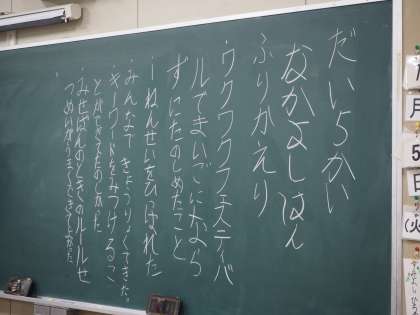 だい5かい
なかよしはん
ふりかえり
・ワクワクフェスティバ
ルでまいごになら
ずにたのしめたこと
・1ねんせいをひっぱれた
・みんなできょうりょくできた。
・キーワードをみつけるこ
とができてたのしかった
・みせばんのときのルールせ
つめいがうまくできてよかった。
月
5
日
(火